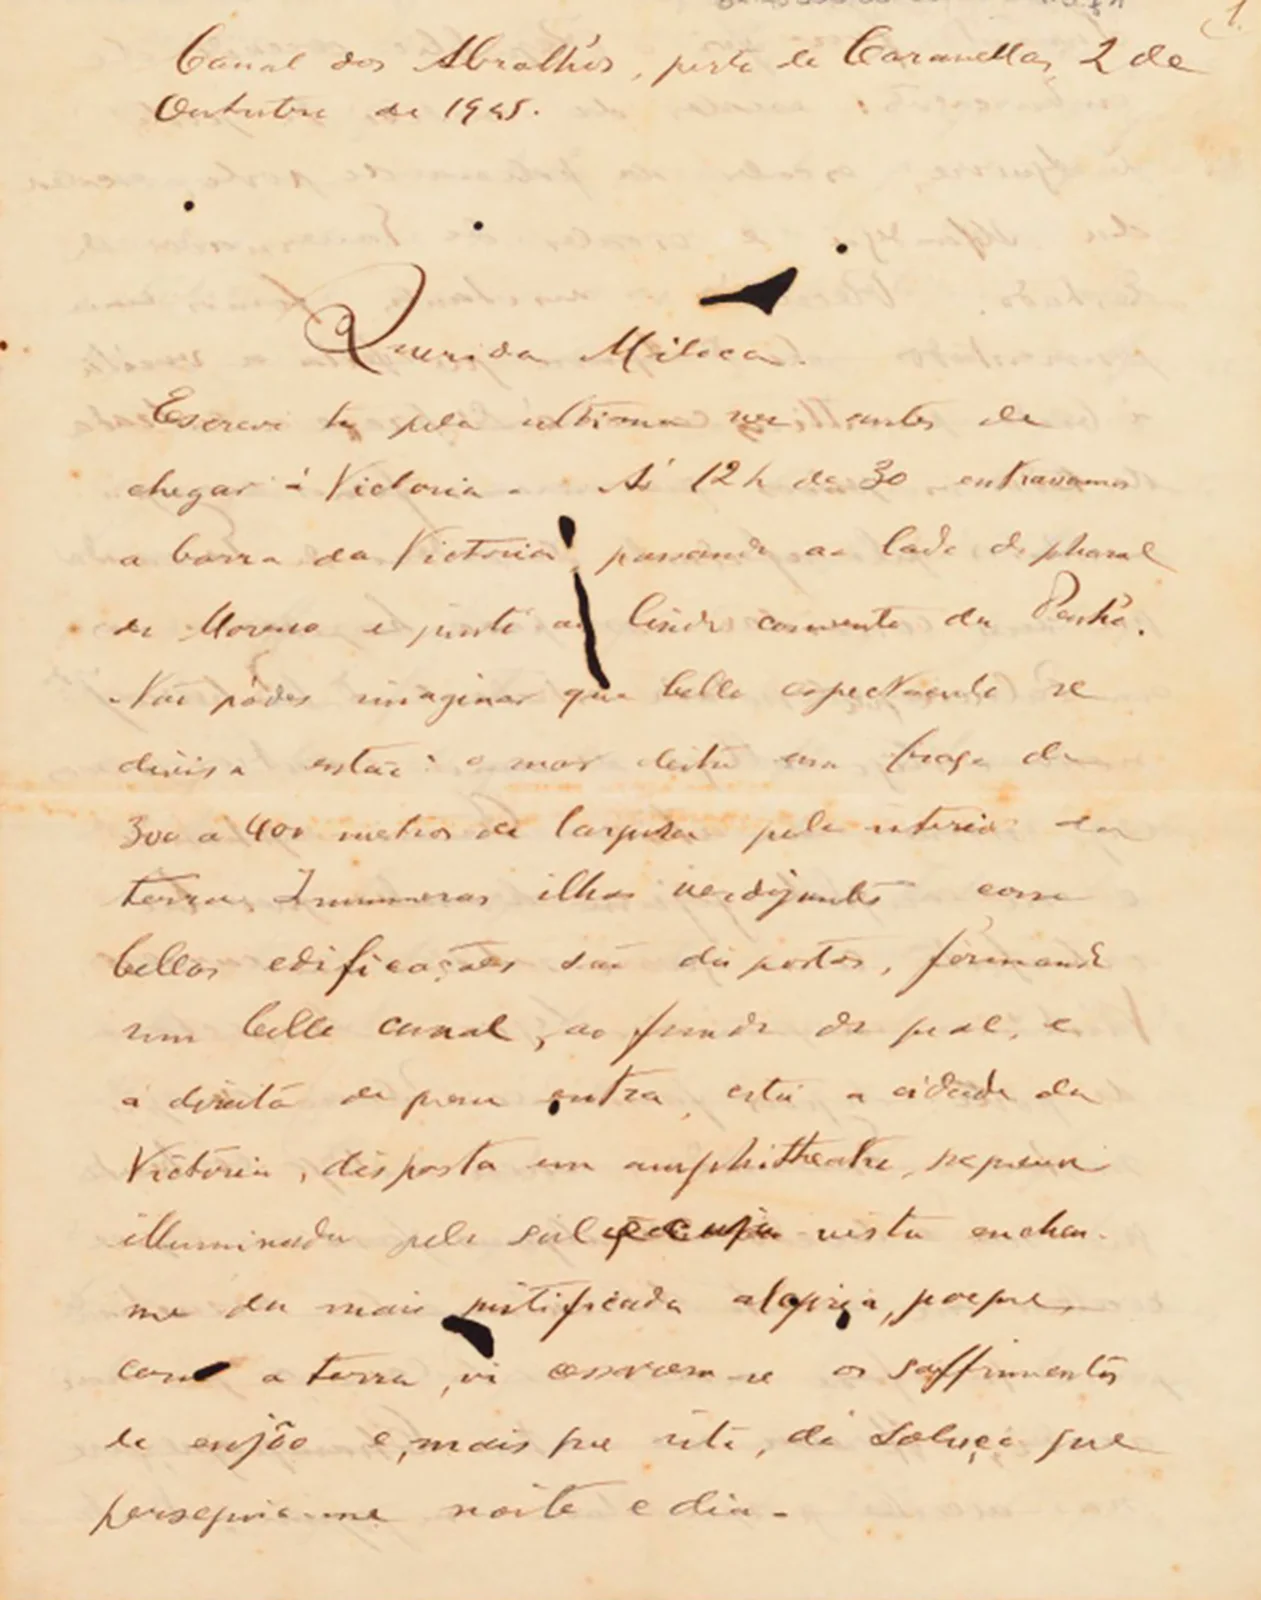 1.
Canal dos Abrolhos, perto de Caravellas, 2 de
Outubro de 1905.
Querida Miloca.
Escrevi te pela ultima vez antes de
chegar á Victoria. Ás 12 h de 30 entravamos
a barra da Victoria, passando ao lado do pharol
de Moreno e junto ao lindo convento da Penha.
Não pódes imaginar que bello espectaculo se
divisa então: o mar deita um braço de
300 a 400 metros de largura pelo interior da
terra. Innumeras ilhas verdejantes com
bellas edificações são dispostas, formando
um bello canal, ao fundo do qual, e
á direita de quem entra, está a cidade da
Victoria, disposta em amphitheatro, pequena
illuminada pelo sol e cuja vista encheu-
me da mais justificada alegria, porque,
com a terra, vi cessarem-se os soffrimentos
de enjôo e, mais que isto, do soluço que
perseguia-me noite e dia.